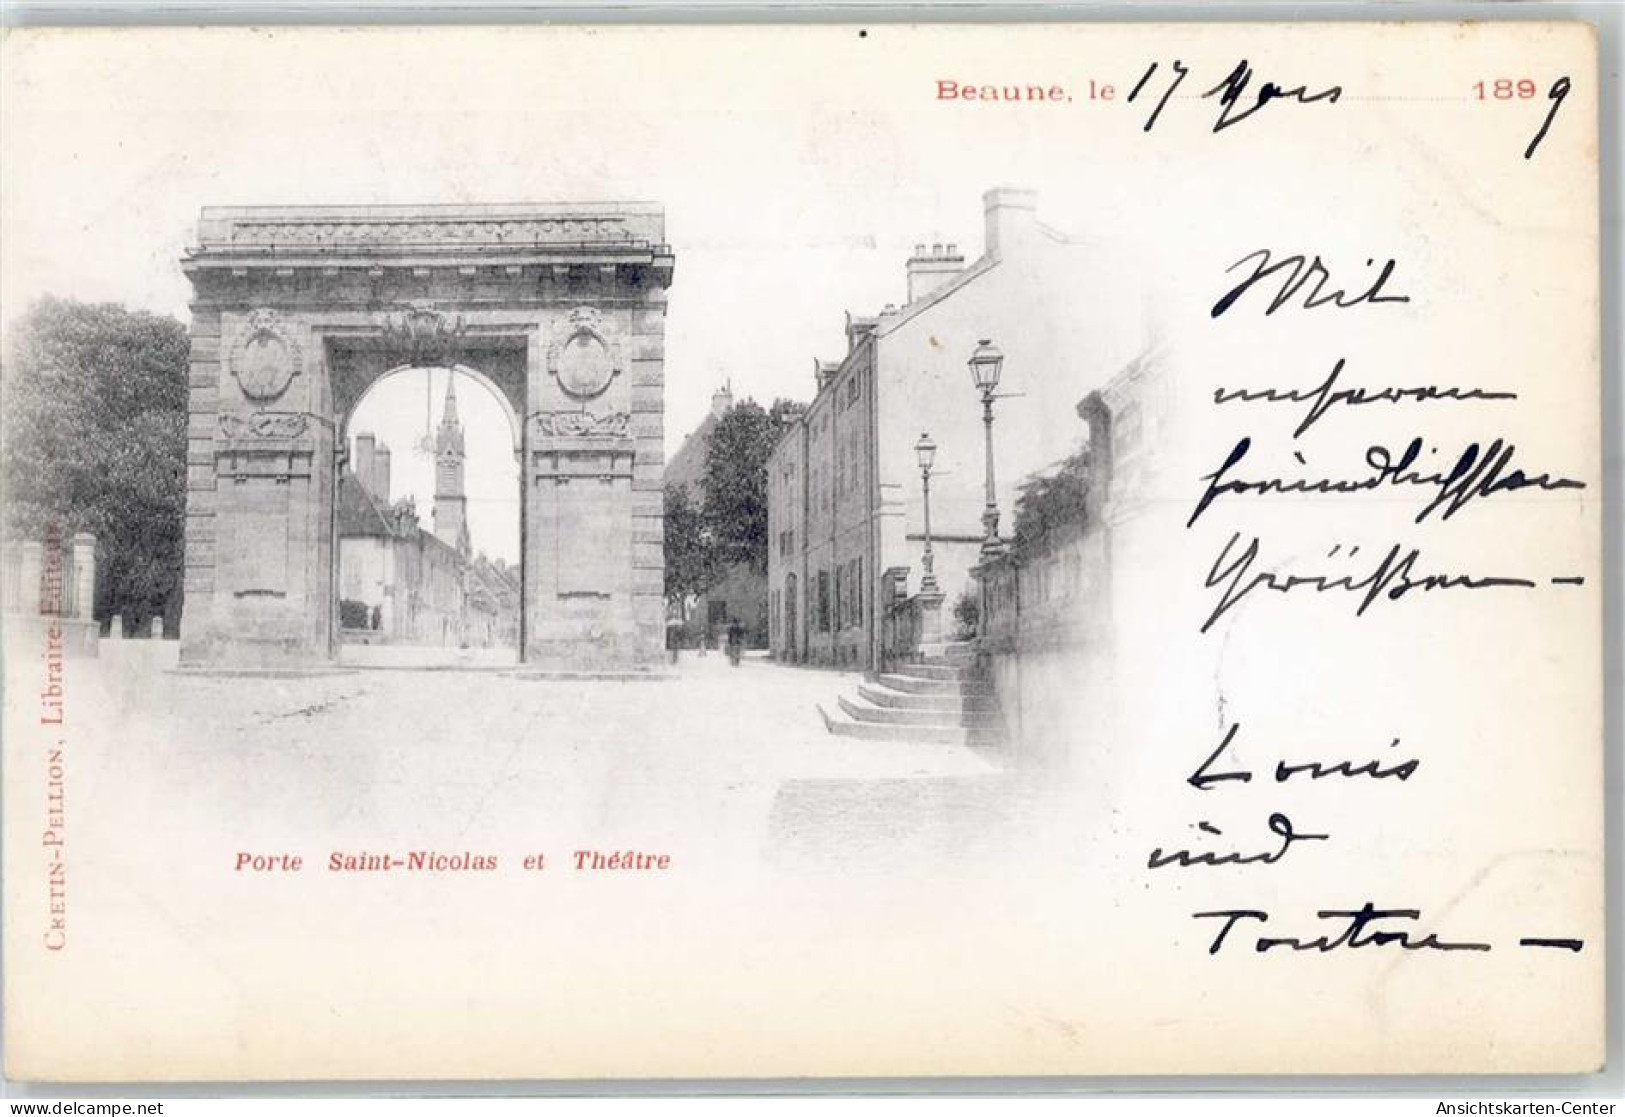 Beaune, le 17 Mars 1899
Mit
unseren
freundlichsten
Grüßen –
Louis
und
Porte Saint-Nicolas et Théâtre
CRETIN-PELLION, Libraire-Editeur
akpool.de
Ansichtskarten-Center